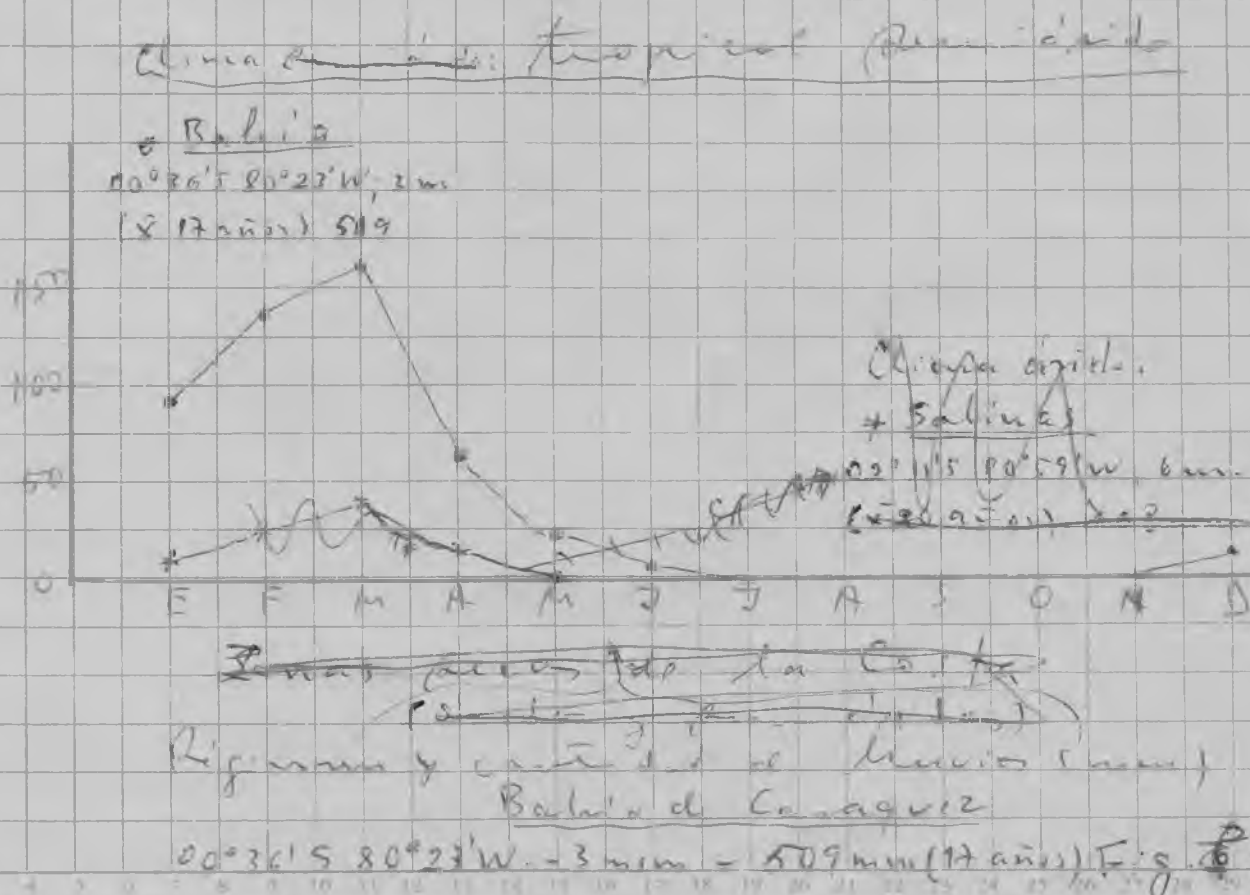 Clima tropical semiárido
* Bahía
00°36'S 80°23'W, 3 m
(x̄ 17 años) 509
150
100
50
0
Clima árido.
* Salinas
02°11'S 80°59'W 6 m.
E F M A M J J A S O N D
Zonas de la Costa
Régimen y cantidad de lluvias (mm)
Bahía de Caraquez
00°36'S 80°23'W - 3 msm - 509 mm (17 años) Fig.